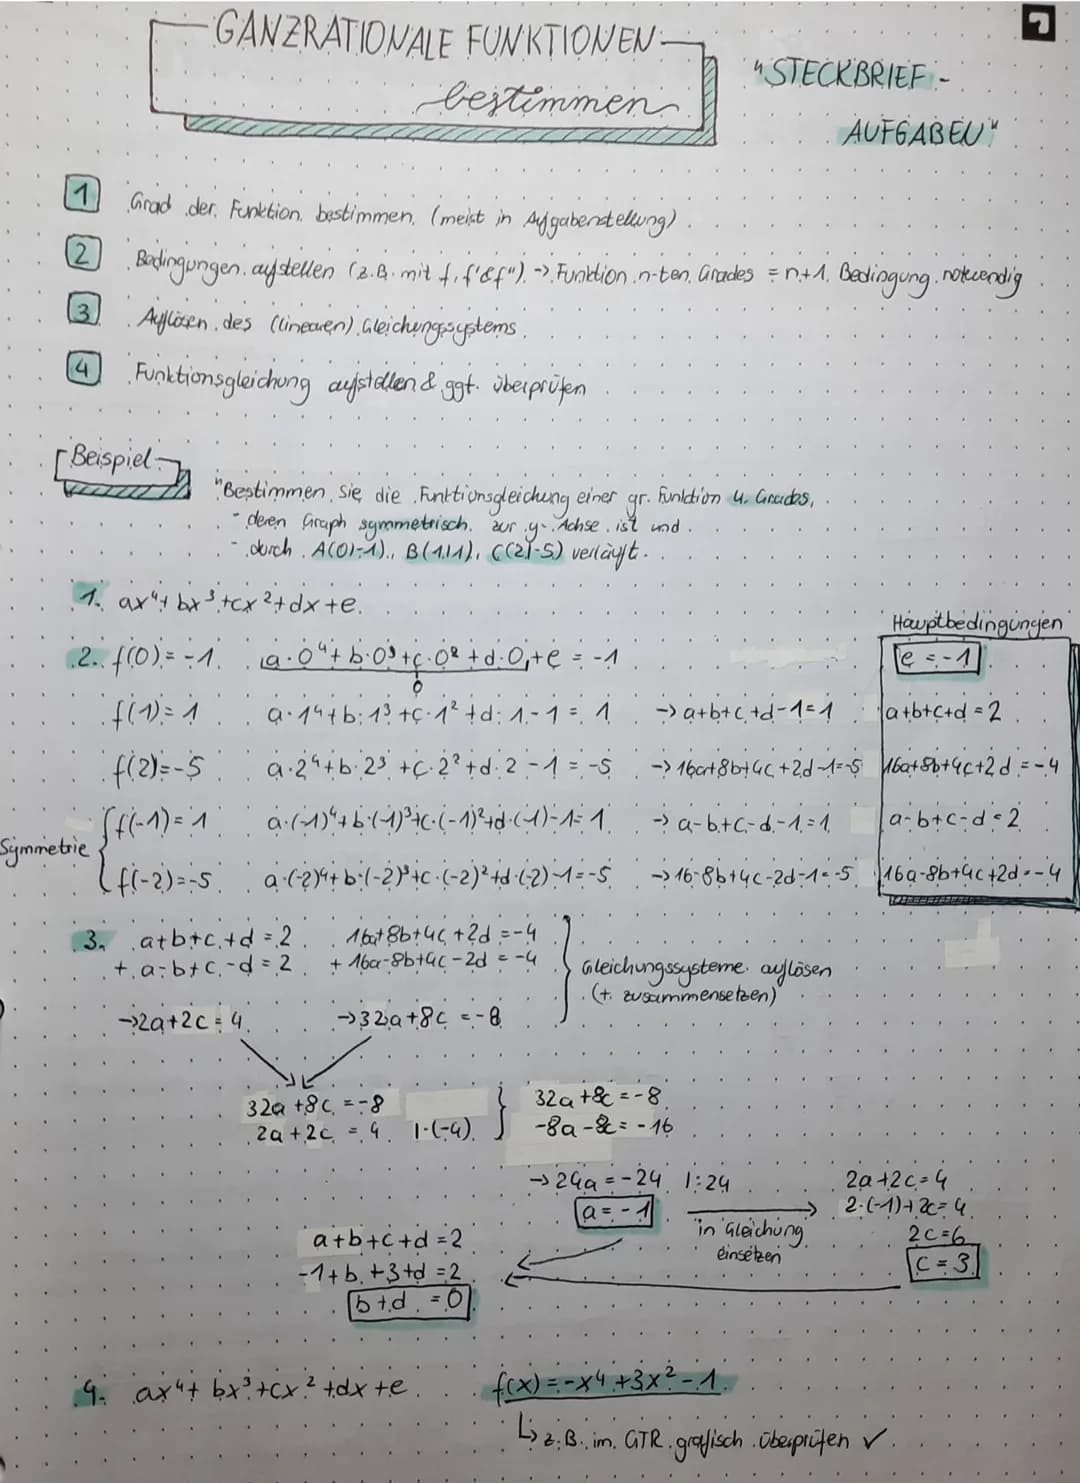 GANZRATIONALE FUNKTIONEN
bestimmen
"STECKBRIEF-
AUFGABEN"
1 Grad der Funktion bestimmen (meist in Aufgabenstellung)
2 Bedingungen aufstellen (z.B. mit f, f' & f") -> Funktion n-ten Grades = n+1 Bedingung notwendig
3 Auflösen des (linearen) Gleichungssystems
4 Funktionsgleichung aufstellen & ggf. überprüfen
Beispiel
"Bestimmen Sie die Funktionsgleichung einer gr. Funktion 4. Grades,
- deren Graph symmetrisch zur y-Achse ist und
- durch A(0|-1), B(1|1), C(2|-5) verläuft.
1. ax⁴+bx³+cx²+dx+e
Hauptbedingungen
2. f(0)=-1 a·0⁴+b·0³+c·0²+d·0+e=-1 e=-1
0
f(1)=1 a·1⁴+b·1³+c·1²+d·1-1=1 ->a+b+c+d-1=1 a+b+c+d=2
f(2)=-5 a·2⁴+b·2³+c·2²+d·2-1=-5 ->16a+8b+4c+2d-1=-5 16a+8b+4c+2d=-4
Symmetrie { f(-1)=1 a·(-1)⁴+b·(-1)³+c·(-1)²+d·(-1)-1=1 -> a-b+c-d-1=1 a-b+c-d=2
f(-2)=-5 a·(-2)⁴+b·(-2)³+c·(-2)²+d·(-2)-1=-5 ->16-8b+4c-2d-1=-5 16a-8b+4c+2d=-4
3. a+b+c+d=2 16a+8b+4c+2d=-4
+ a-b+c-d=2 + 16a-8b+4c-2d=-4 } Gleichungssysteme auflösen
(+ zusammensetzen)
->2a+2c=4 ->32a+8c=-8
32a+8c=-8 } 32a+8c=-8
2a+2c=4 |·(-4) -8a-8c=-16
->24a=-24 |:24 2a+2c=4
a=-1 in Gleichung einsetzen 2·(-1)+2c=4
a+b+c+d=2 2c=6
-1+b+3+d=2 c=3
b+d=0
4. ax⁴+bx³+cx²+dx+e f(x)=-x4+3x²-1
↳ z.B. im GTR grafisch überprüfen ✓